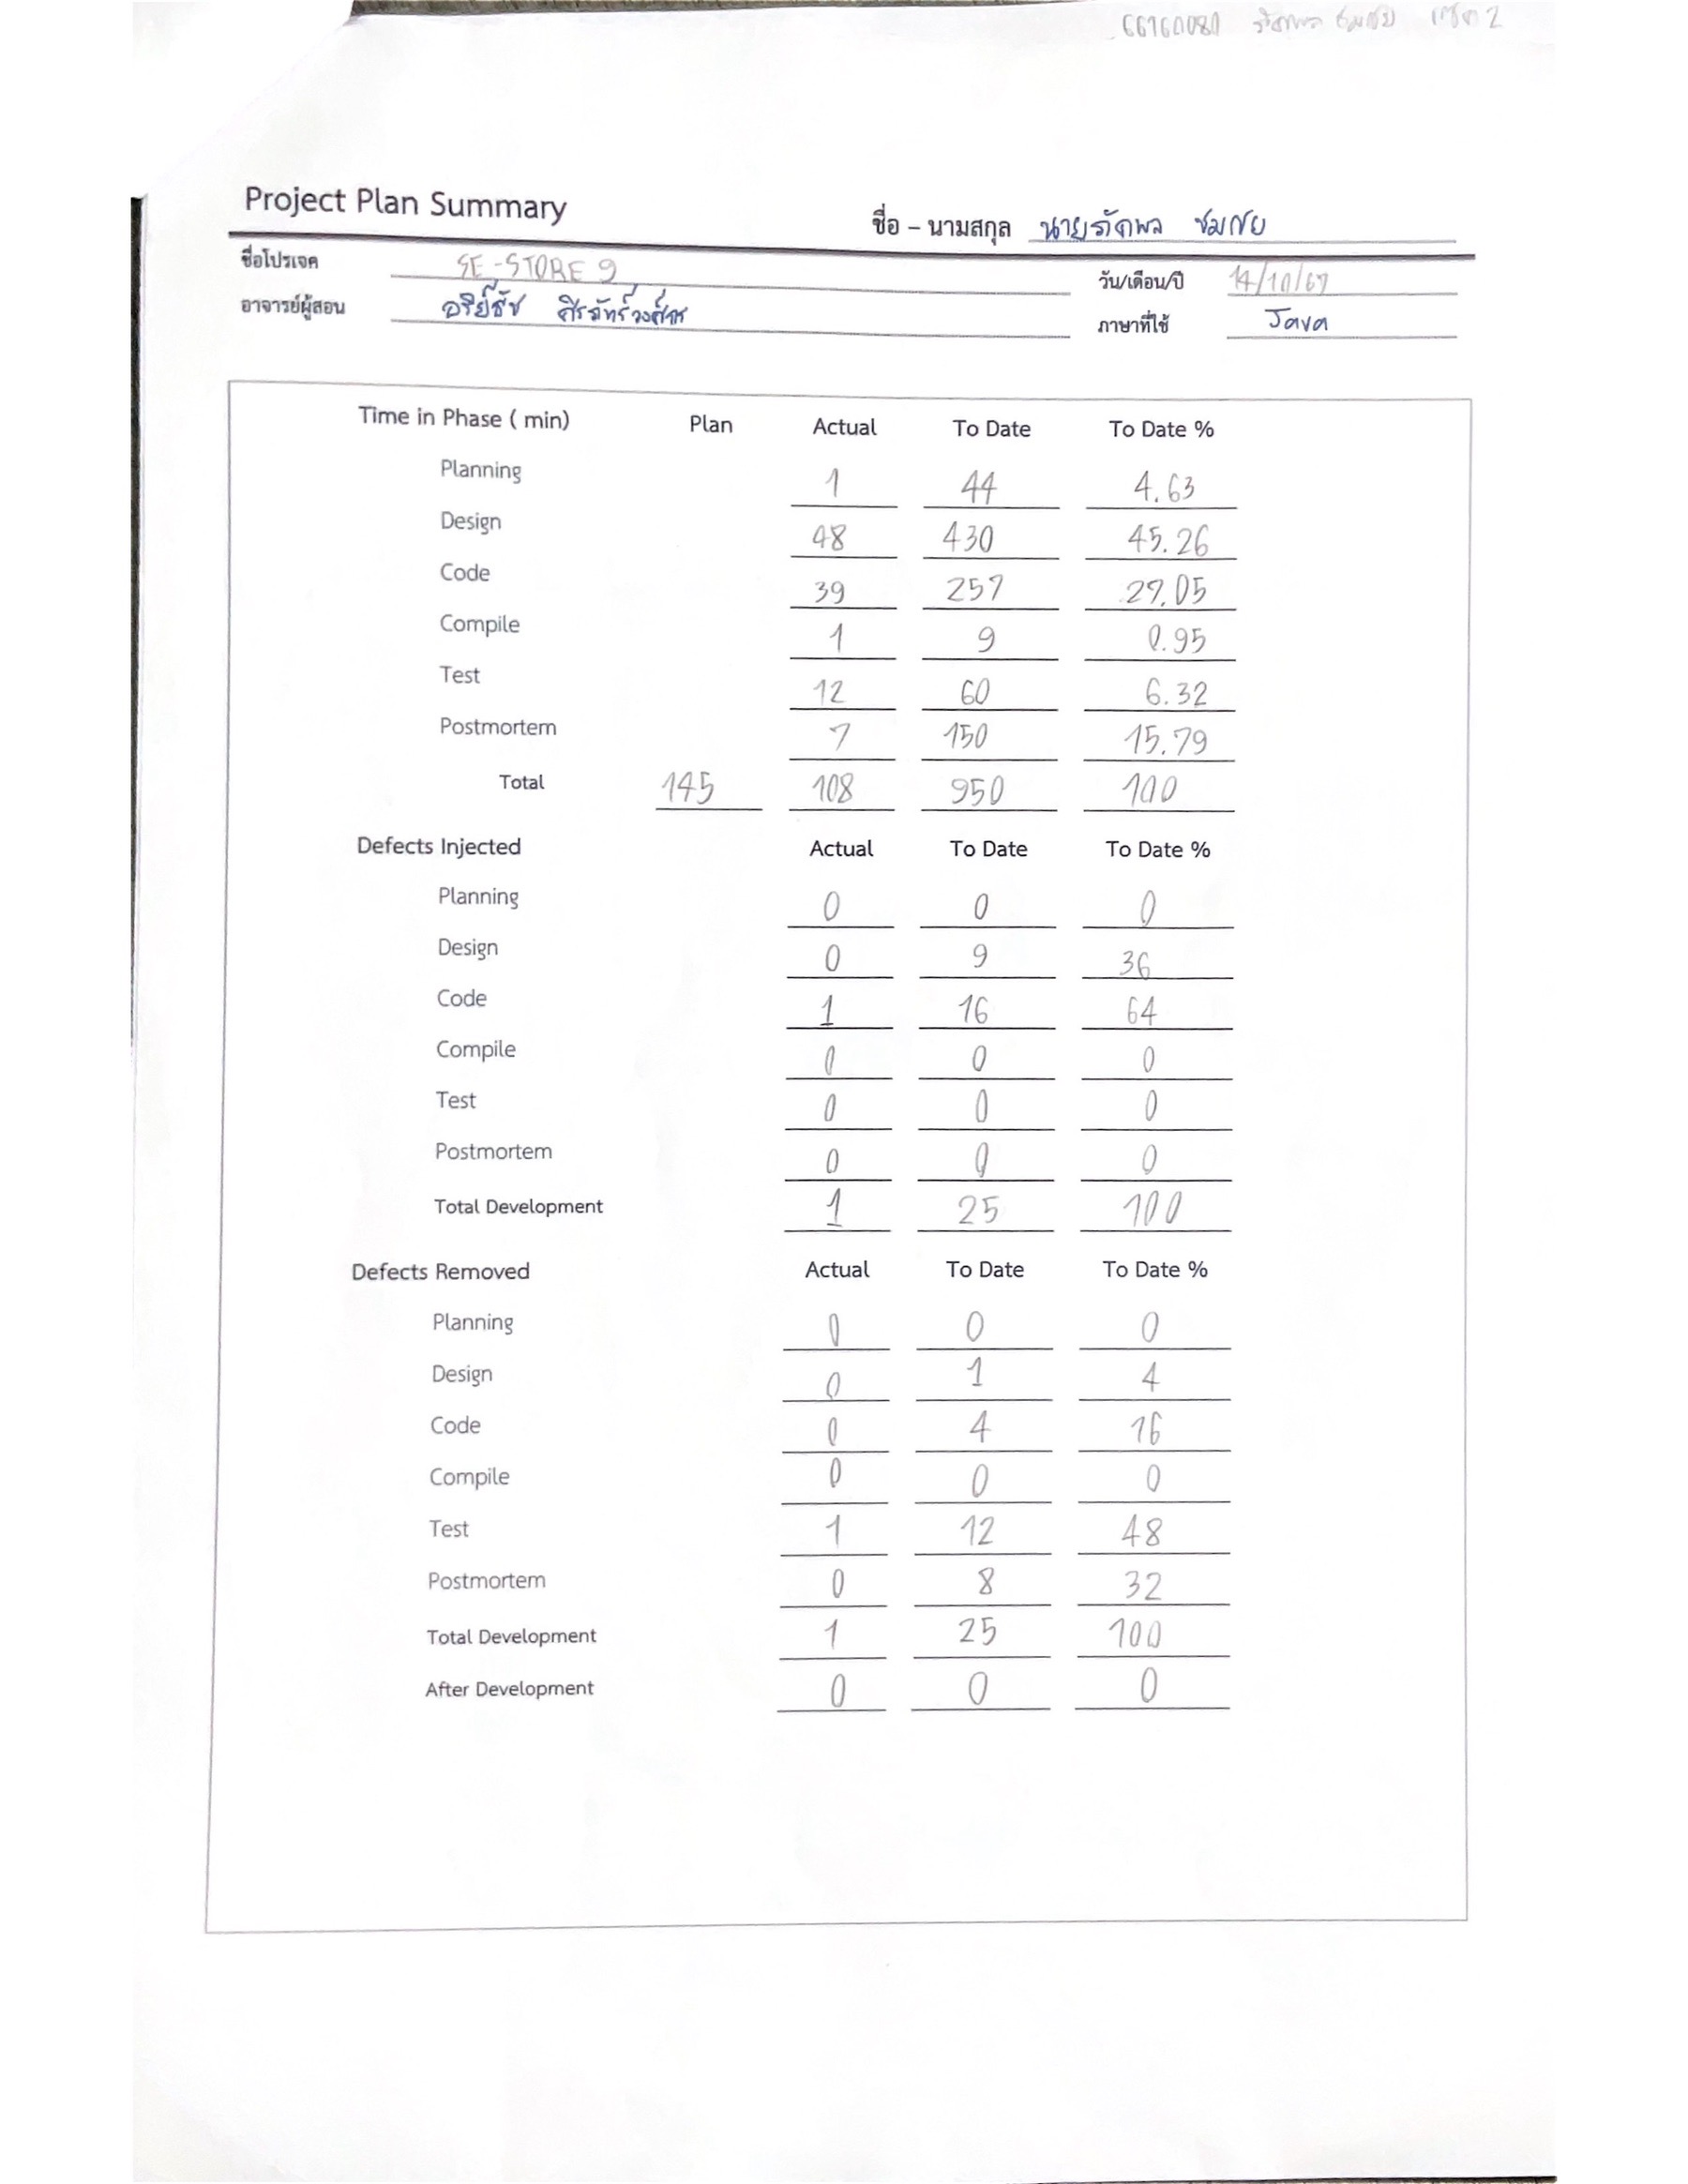 66160080 เซค 2
Project Plan Summary
ชื่อ – นามสกุล นายภัคพล ชมภัย
ชื่อโปรเจค SE-STORE 9
วัน/เดือน/ปี 14/10/67
อาจารย์ผู้สอน อธิย์ธัช
ภาษาที่ใช้ Java
Time in Phase ( min) Plan Actual To Date To Date %
Planning 1 44 4.63
Design 48 430 45.26
Code 39 257 27.05
Compile 1 9 0.95
Test 12 60 6.32
Postmortem 7 150 15.79
Total 145 108 950 100
Defects Injected Actual To Date To Date %
Planning 0 0 0
Design 0 9 36
Code 1 16 64
Compile 0 0 0
Test 0 0 0
Postmortem 0 0 0
Total Development 1 25 100
Defects Removed Actual To Date To Date %
Planning 0 0 0
Design 0 1 4
Code 0 4 16
Compile 0 0 0
Test 1 12 48
Postmortem 0 8 32
Total Development 1 25 100
After Development 0 0 0